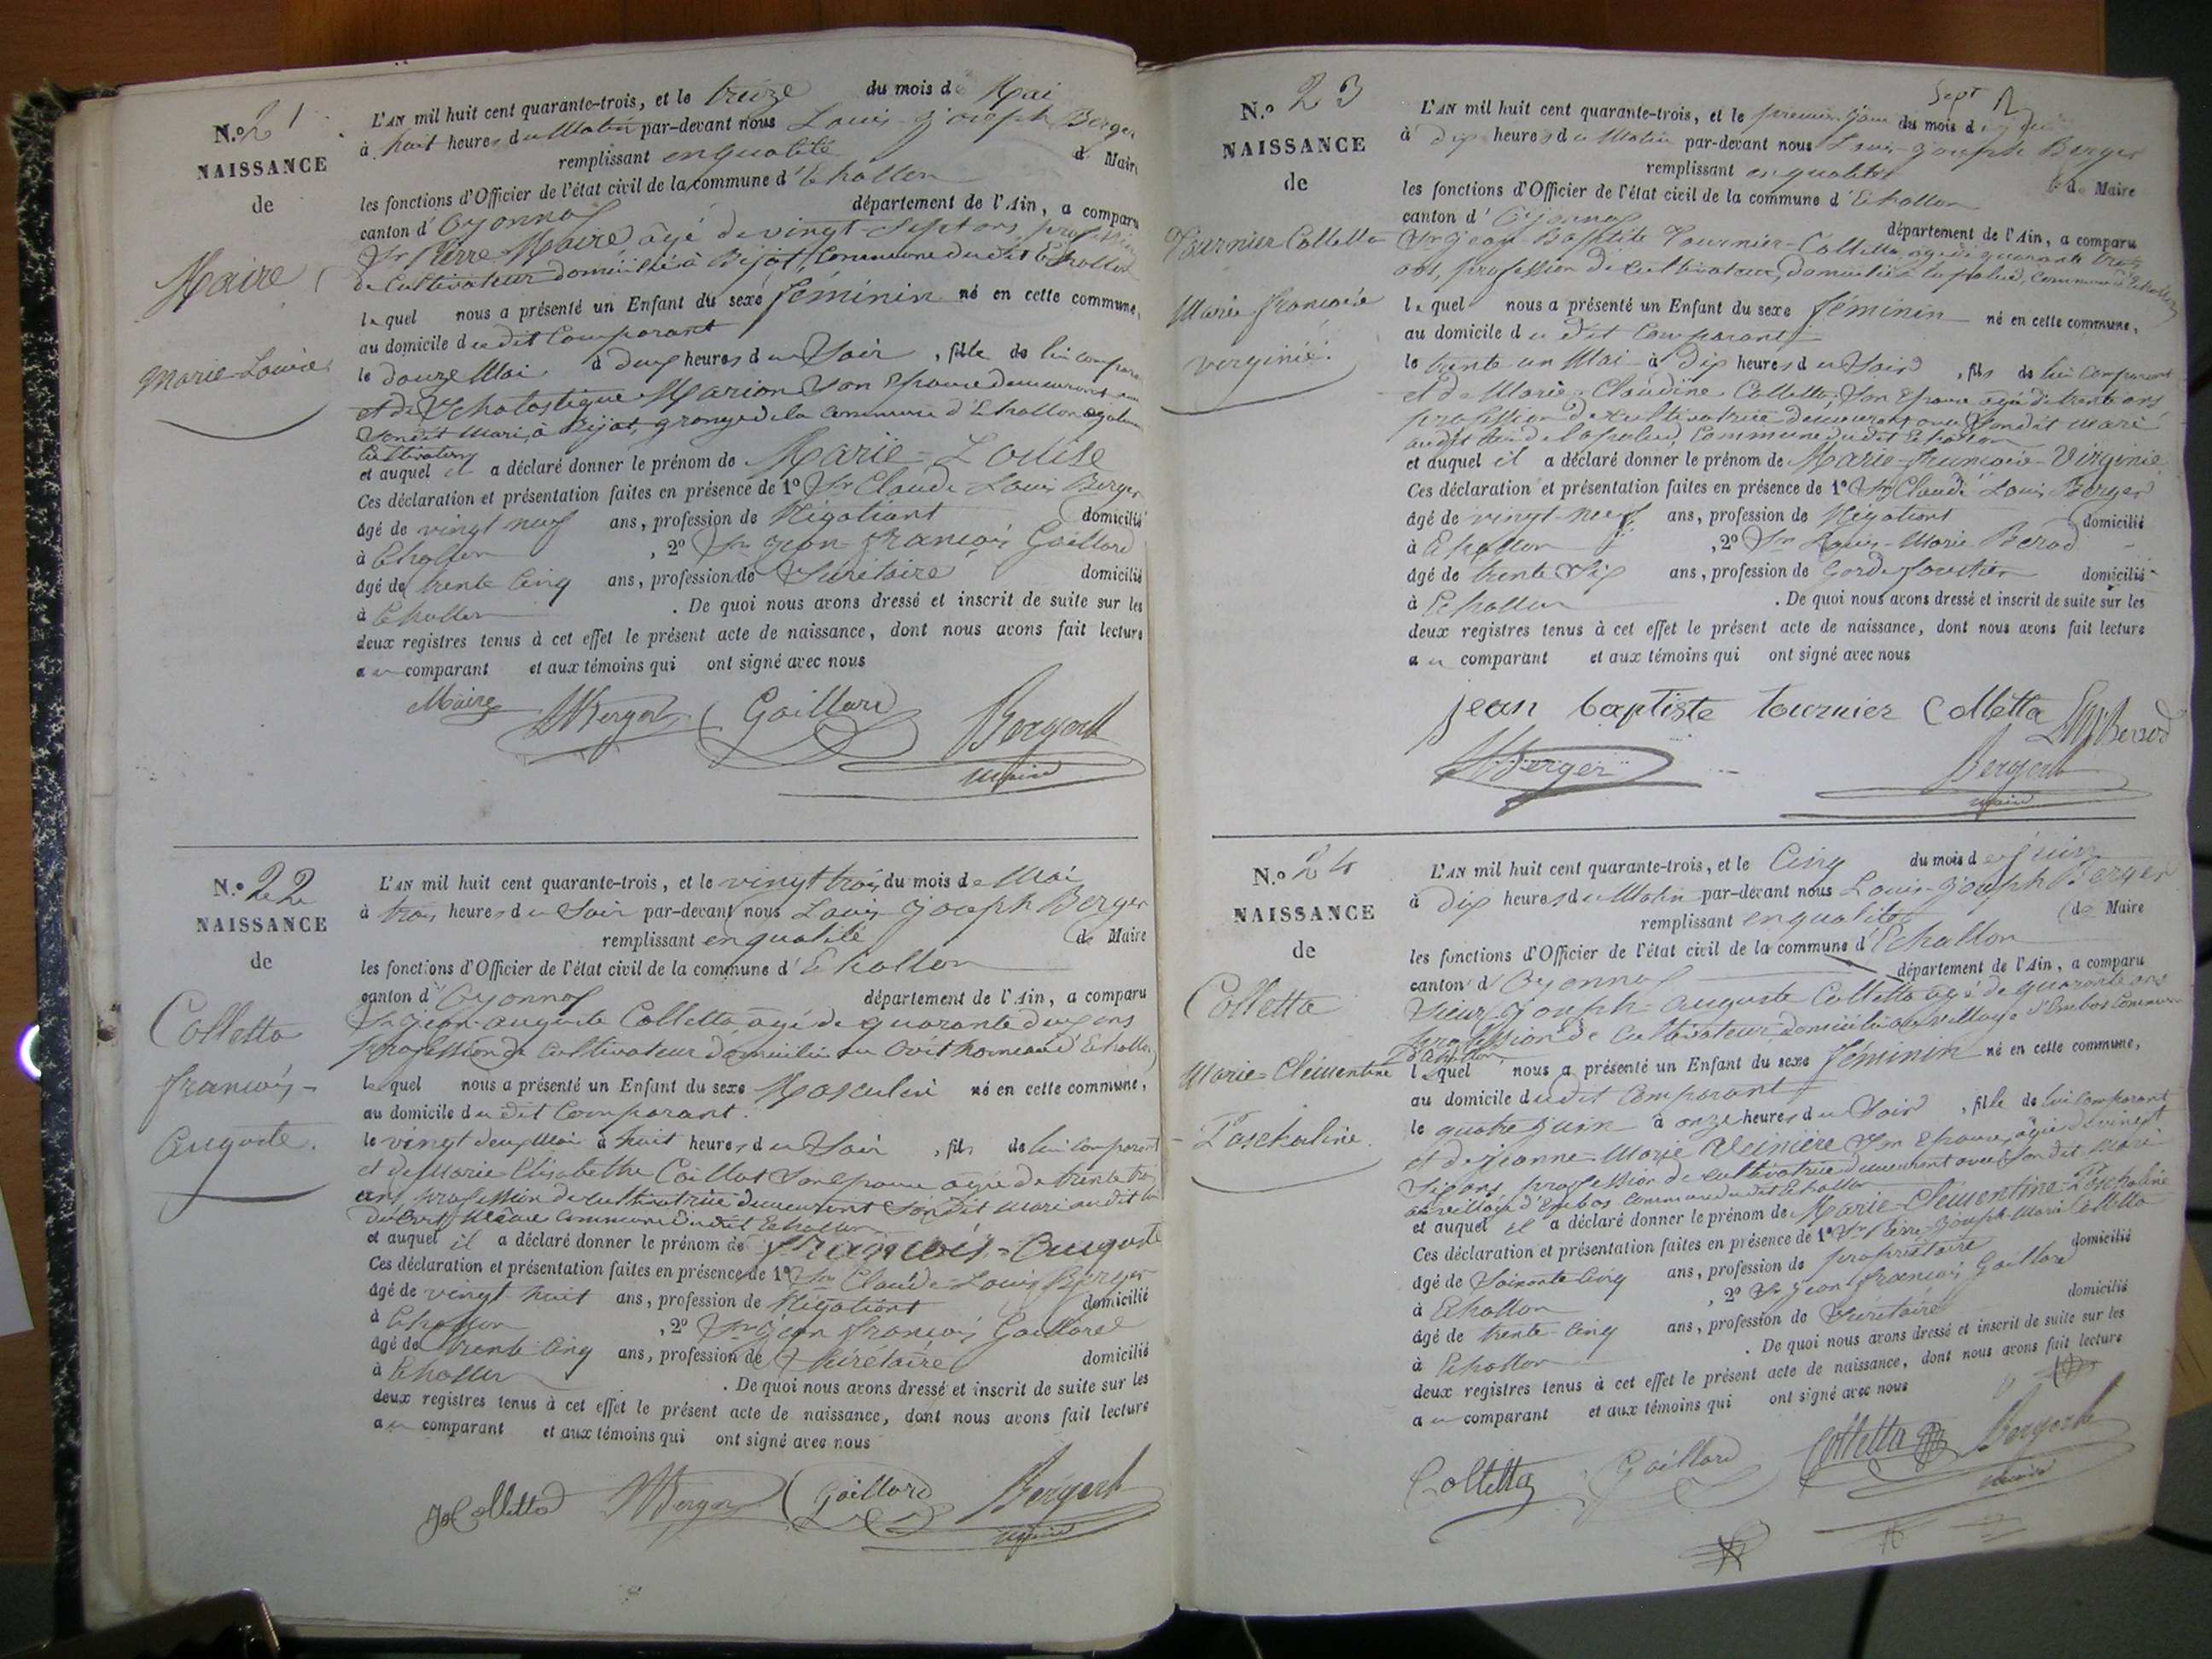 N.o 21
NAISSANCE
de
Maire
Marie-Louise
L'AN mil huit cent quarante-trois, et le treize du mois de Mai
à huit heures du Matin par-devant nous Louis-Joseph Berger
remplissant en qualité de Maire
les fonctions d'Officier de l'état civil de la commune d'Echallon
canton d'Oyonnax département de l'Ain, a comparu
Sr Pierre Maire, âgé de vingt-sept ans, profession
de Cultivateur domicilié à Bijot, Commune du dit Echallon
lequel nous a présenté un Enfant du sexe féminin né en cette commune,
au domicile du dit Comparant
le douze Mai à deux heures du Soir, fille de lui comparant
et de Scholastique Marion Son Epouse demeurant avec
Sondit Mari, à Bijot, grange de la Commune d'Echallon
Cultivatrice
et auquel il a déclaré donner le prénom de Marie-Louise
Ces déclaration et présentation faites en présence de 1o Sr Claude Louis Berger
âgé de vingt neuf ans, profession de Négotiant domicilié
à Echallon, 2o Sr Jean François Gaillard
âgé de trente cinq ans, profession de Secrétaire domicilié
à Echallon. De quoi nous avons dressé et inscrit de suite sur les
deux registres tenus à cet effet le présent acte de naissance, dont nous avons fait lecture
au comparant et aux témoins qui ont signé avec nous
Maire Berger Gaillard Berger
maire
N.o 22
NAISSANCE
de
Colletta
François-
Auguste.
L'AN mil huit cent quarante-trois, et le vingt trois du mois de Mai
à trois heures du Soir par-devant nous Louis Joseph Berger
remplissant en qualité de Maire
les fonctions d'Officier de l'état civil de la commune d'Echallon
canton d'Oyonnax département de l'Ain, a comparu
Sr Jean-Auguste Colletta âgé de quarante deux ans
profession de Cultivateur domicilié au Crêt hameau d'Echallon
lequel nous a présenté un Enfant du sexe Masculin né en cette commune,
au domicile du dit Comparant.
le vingt deux Mai à huit heures du Soir, fils de lui comparant
et de Marie Elisabethe Caillat Son Epouse âgée de trente trois
ans, profession de cultivatrice demeurant Sondit Mari audit lieu
du Crêt, Même Commune du dit Echallon
et auquel il a déclaré donner le prénom de François-Auguste
Ces déclaration et présentation faites en présence de 1o Sr Claude-Louis Berger
âgé de vingt-huit ans, profession de Négotiant domicilié
à Echallon, 2o Sr Jean François Gaillard
âgé de trente cinq ans, profession de Secrétaire domicilié
à Echallon. De quoi nous avons dressé et inscrit de suite sur les
deux registres tenus à cet effet le présent acte de naissance, dont nous avons fait lecture
au comparant et aux témoins qui ont signé avec nous
Colletta Berger Gaillard Berger
maire
N.o 23
NAISSANCE
de
Tournier Colletta
Marie françoise
virginie.
Sept
L'AN mil huit cent quarante-trois, et le premier jour du mois de Juin
à dix heures du Matin par-devant nous Louis-Joseph Berger
remplissant en qualité de Maire
les fonctions d'Officier de l'état civil de la commune d'Echallon
canton d'Oyonnax département de l'Ain, a comparu
Sr Jean-Baptiste Tournier-Colletta, âgé de quarante trois
ans, profession de Cultivateur, domicilié à lapalud, Commune d'Echallon
lequel nous a présenté un Enfant du sexe féminin né en cette commune,
au domicile du dit Comparant
le trente un Mai à dix heures du Soir, fils de lui Comparant
et de Marie-Claudine Colletta, Son Epouse âgée de trente ans
profession de cultivatrice demeurant avec Sondit mari
audit lieu de lapalud, Commune du dit Echallon
et auquel il a déclaré donner le prénom de Marie-françoise-Virginie
Ces déclaration et présentation faites en présence de 1o Sr Claude Louis Berger
âgé de vingt-neuf ans, profession de Négotiant domicilié
à Echallon, 2o Sr Louis-Marie Berod
âgé de trente six ans, profession de Garde forestier domicilié
à Echallon. De quoi nous avons dressé et inscrit de suite sur les
deux registres tenus à cet effet le présent acte de naissance, dont nous avons fait lecture
au comparant et aux témoins qui ont signé avec nous
jean baptiste tournier Colletta Berrod
Berger Berger
maire
N.o 24
NAISSANCE
de
Colletta
Marie-Clémentine
-Paschaline.
L'AN mil huit cent quarante-trois, et le Cinq du mois de Juin
à Dix heures du Matin par-devant nous Louis-Joseph Berger
remplissant en qualité de Maire
les fonctions d'Officier de l'état civil de la commune d'Echallon
canton d'Oyonnax département de l'Ain, a comparu
Sieur Joseph-Auguste Colletta âgé de quarante ans
profession de Cultivateur domicilié au village d'Embos Commune
d'Echallon
lequel nous a présenté un Enfant du sexe féminin né en cette commune,
au domicile du dit Comparant
le quatre Juin à onze heures du Soir, fille de lui comparant
et de Jeanne-Marie Son Epouse, âgée de vingt
six ans, profession de cultivatrice demeurant avec Son dit Mari
au village d'Embos Commune du dit Echallon
et auquel il a déclaré donner le prénom de Marie-Clémentine-Paschaline
Ces déclaration et présentation faites en présence de 1o Sr Pierre-Joseph-Marie Colletta
âgé de Soixante cinq ans, profession de propriétaire domicilié
à Echallon, 2o Sr Jean François Gaillard
âgé de trente cinq ans, profession de Secrétaire domicilié
à Echallon. De quoi nous avons dressé et inscrit de suite sur les
deux registres tenus à cet effet le présent acte de naissance, dont nous avons fait lecture
au comparant et aux témoins qui ont signé avec nous
Colletta Gaillard Colletta Berger
maire